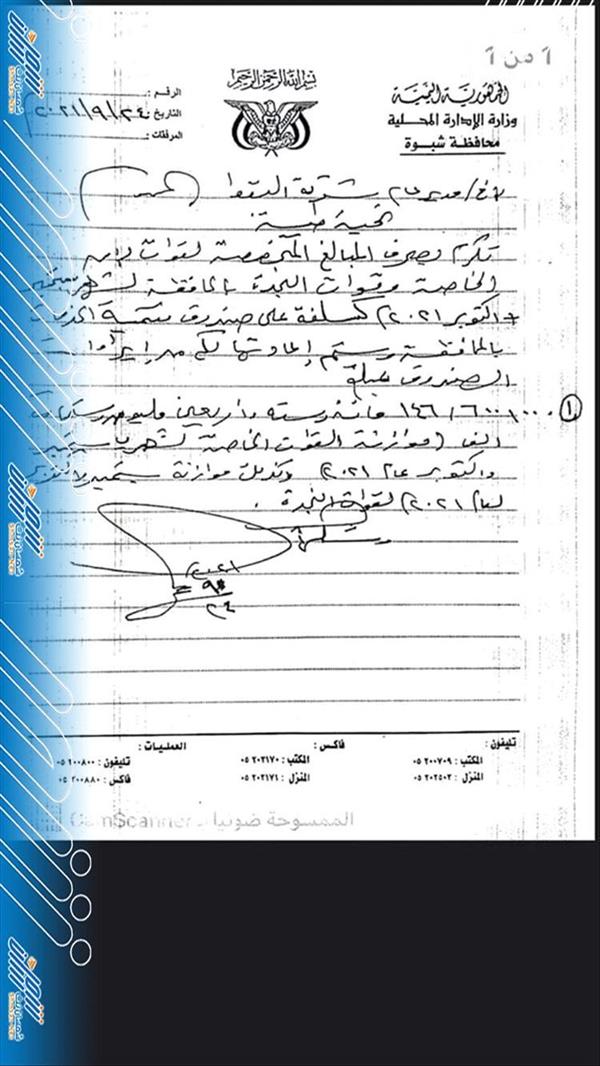 1 من 1
بسم الله الرحمن الرحيم
الجمهورية اليمنية
وزارة الإدارة المحلية
محافظة شبوة
الرقم :
التاريخ : ٢٠٢١/٩/٢٤
المرفقات :
الاخ/ مدير عام شركة النفط المحترم
تحية طيبة
تكرم بصرف المبالغ المخصصة لقوات
الخاصة وقوات النجدة بالمحافظة لشهر سبتمبر
+ اكتوبر ٢٠٢١م كسلفة على صندوق تنمية الخدمات
بالمحافظة وستتم إعادتها لكم من إيرادات
الصندوق مبلغ
١ ١٤٦/٦٠٠/٠٠٠ مائة وسته واربعين مليون وستمائة
الف (موازنة القوات الخاصة لشهر سبتمبر
واكتوبر عام ٢٠٢١) وكذلك موازنة سبتمبر
لعام ٢٠٢١م لقوات النجدة.
٢٠٢١
٩
٢٤
تليفون :
المكتب : ٠٥ ٢٠٠٧٠٩
المنزل : ٠٥ ٢٠٢٥٠٢
فاكس :
المكتب : ٠٥ ٢٠٢١٧٠
المنزل : ٠٥ ٢٠٢١٧١
العمليات :
تليفون : ٠٥ ٢٠٠٨٠٠
فاكس : ٠٥ ٢٠٠٨٨٠
الممسوحة ضوئيا بـ CamScanner